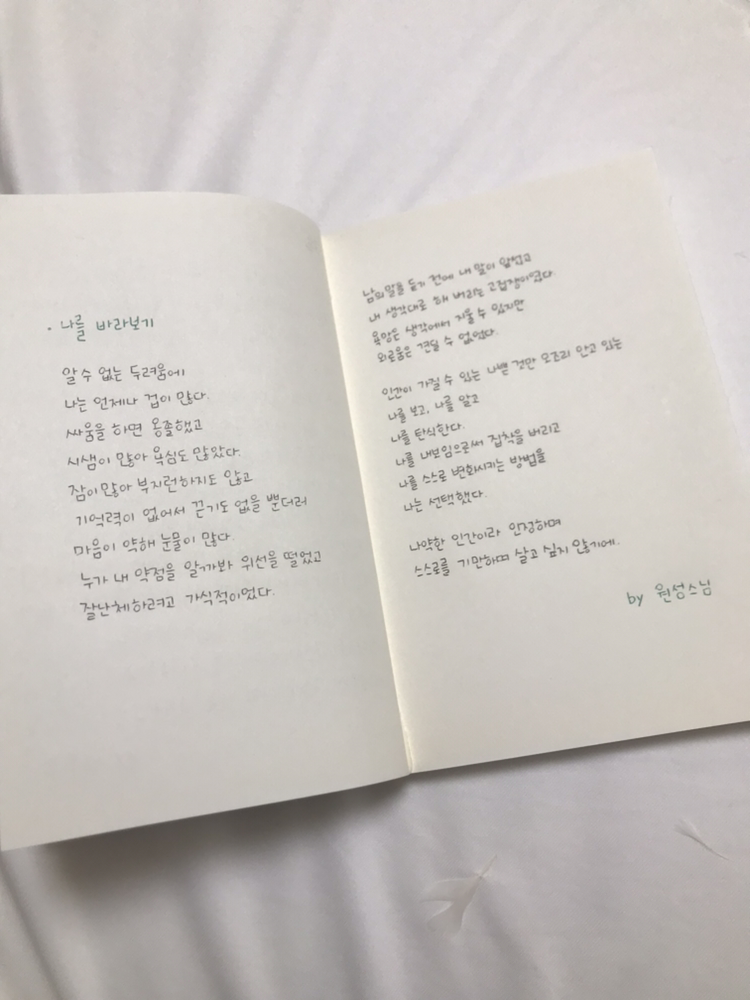 · 나를 바라보기
알 수 없는 두려움에
나는 언제나 겁이 많다.
싸움을 하면 옹졸했고
시샘이 많아 욕심도 많았다.
잠이 많아 부지런하지도 않고
기억력이 없어서 끈기도 없을 뿐더러
마음이 약해 눈물이 많다.
누가 내 약점을 알까봐 위선을 떨었고
잘난체하려고 가식적이었다.
남의 말을 듣기 전에 내 말이 앞섰고
내 생각대로 해 버리는 고집쟁이였다.
욕망은 생각에서 지울 수 있지만
외로움은 견딜 수 없었다.
인간이 가질 수 있는 나쁜 것만 모조리 안고 있는
나를 보고, 나를 알고
나를 탄식한다.
나를 내보임으로써 집착을 버리고
나를 스스로 변화시키는 방법을
나는 선택했다.
나약한 인간이라 인정하며
스스로를 기만하며 살고 싶지 않기에.
by 원성스님